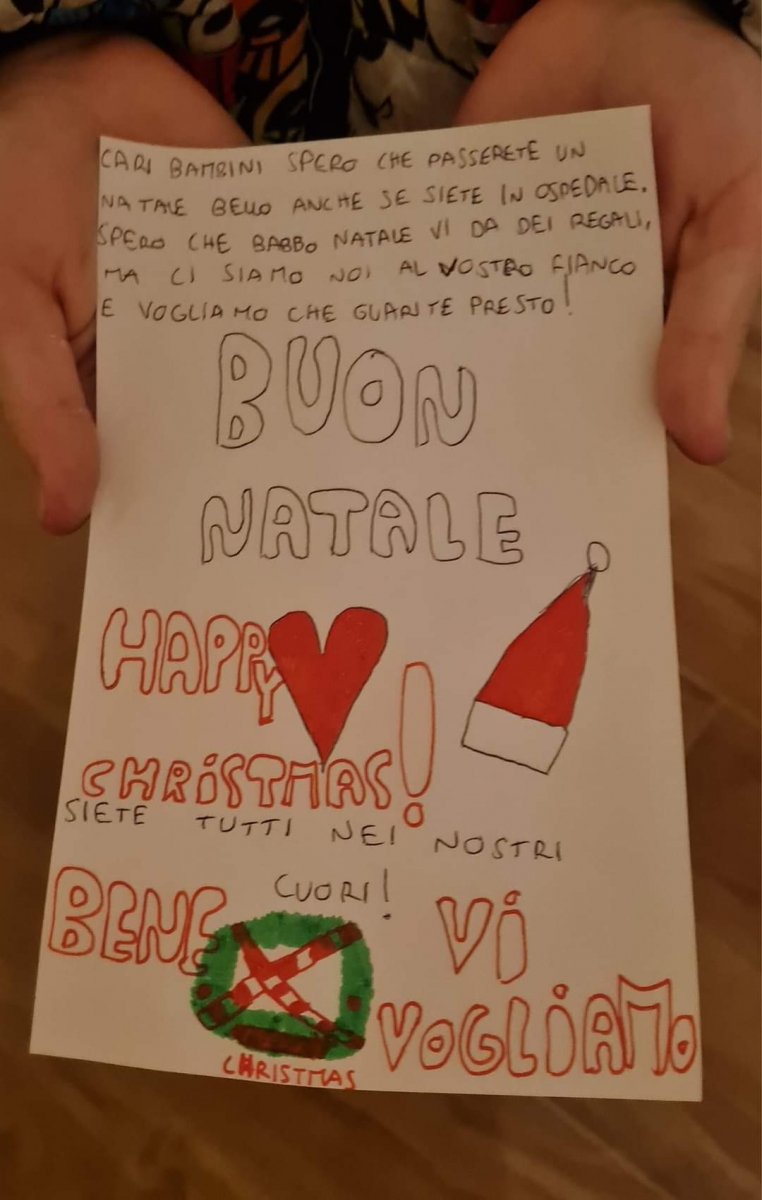 CARI BAMBINI SPERO CHE PASSERETE UN
NATALE BELLO ANCHE SE SIETE IN OSPEDALE.
SPERO CHE BABBO NATALE VI DA DEI REGALI,
MA CI SIAMO NOI AL VOSTRO FIANCO
E VOGLIAMO CHE GUARITE PRESTO!
BUON
NATALE
HAPPY
CHRISTMAS!
SIETE TUTTI NEI NOSTRI
CUORI!
BENE VI
VOGLIAMO
CHRISTMAS